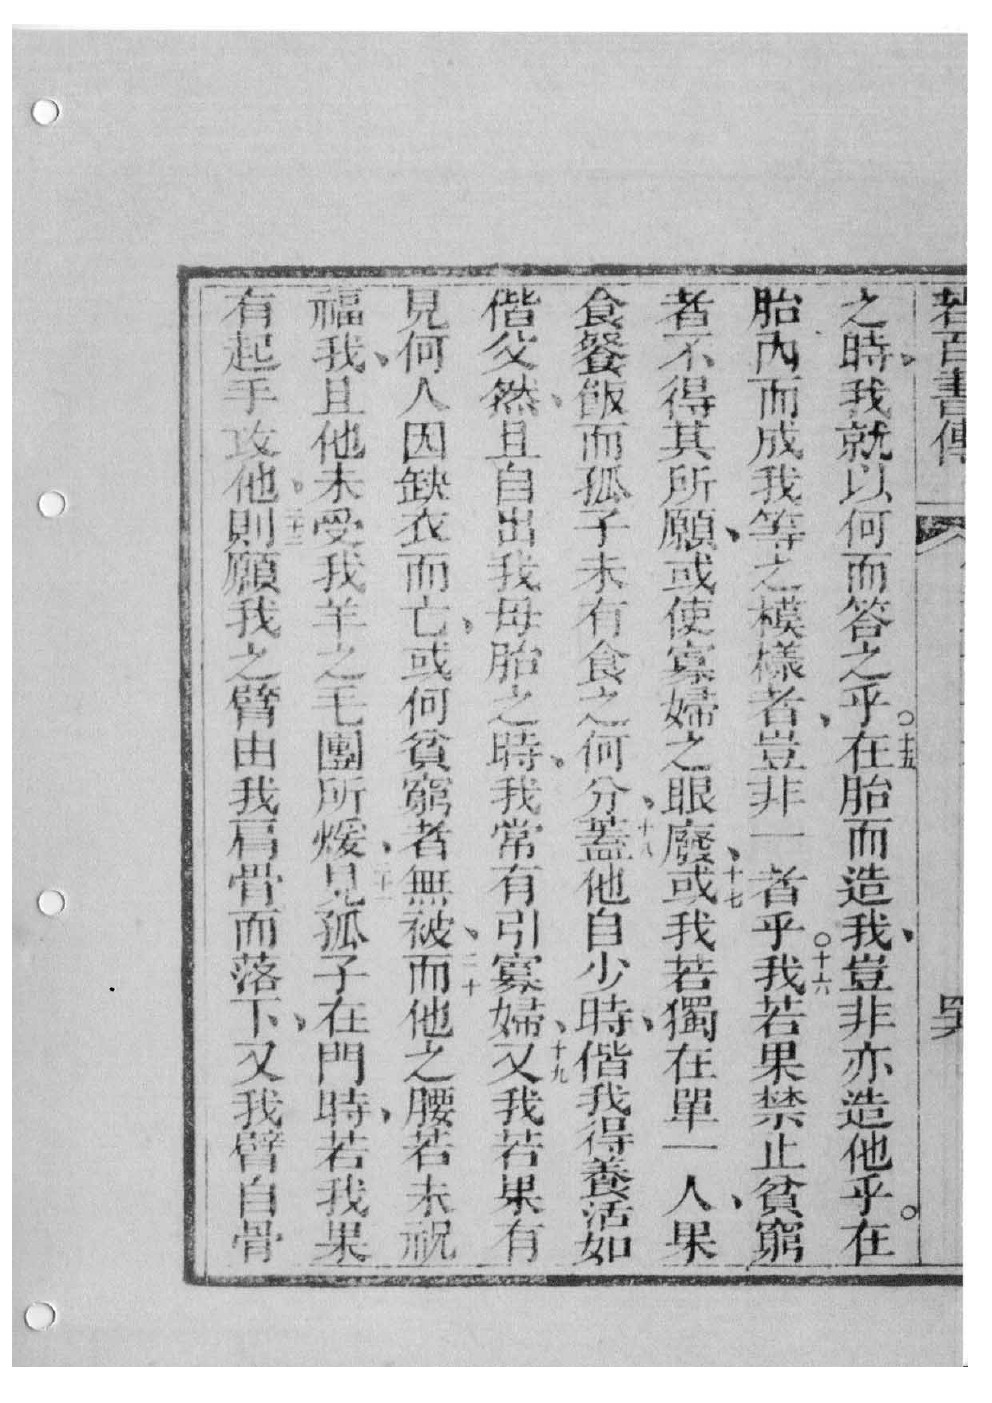 若百書傳
之時、我就以何而答之乎。十五在胎而造我、豈非亦造他乎。在
胎內而成我等之模樣者、豈非一者乎。十六我若果禁止貧窮
者不得其所願、或使寡婦之眼廢、十七或我若獨在單一人、果
食餐飯而孤子未有食之何分、十八蓋他自少時、偕我得養活如
偕父然、且自出我母胎之時、我常有引寡婦、十九又我若果有
見何人因缺衣而亡、或何貧窮者無被、二十而他之腰若未祝
福我、且他未受我羊之毛團所煖、二十一見孤子在門時、若我果
有起手攻他、二十二則願我之臂由我肩骨而落下、又我臂自骨